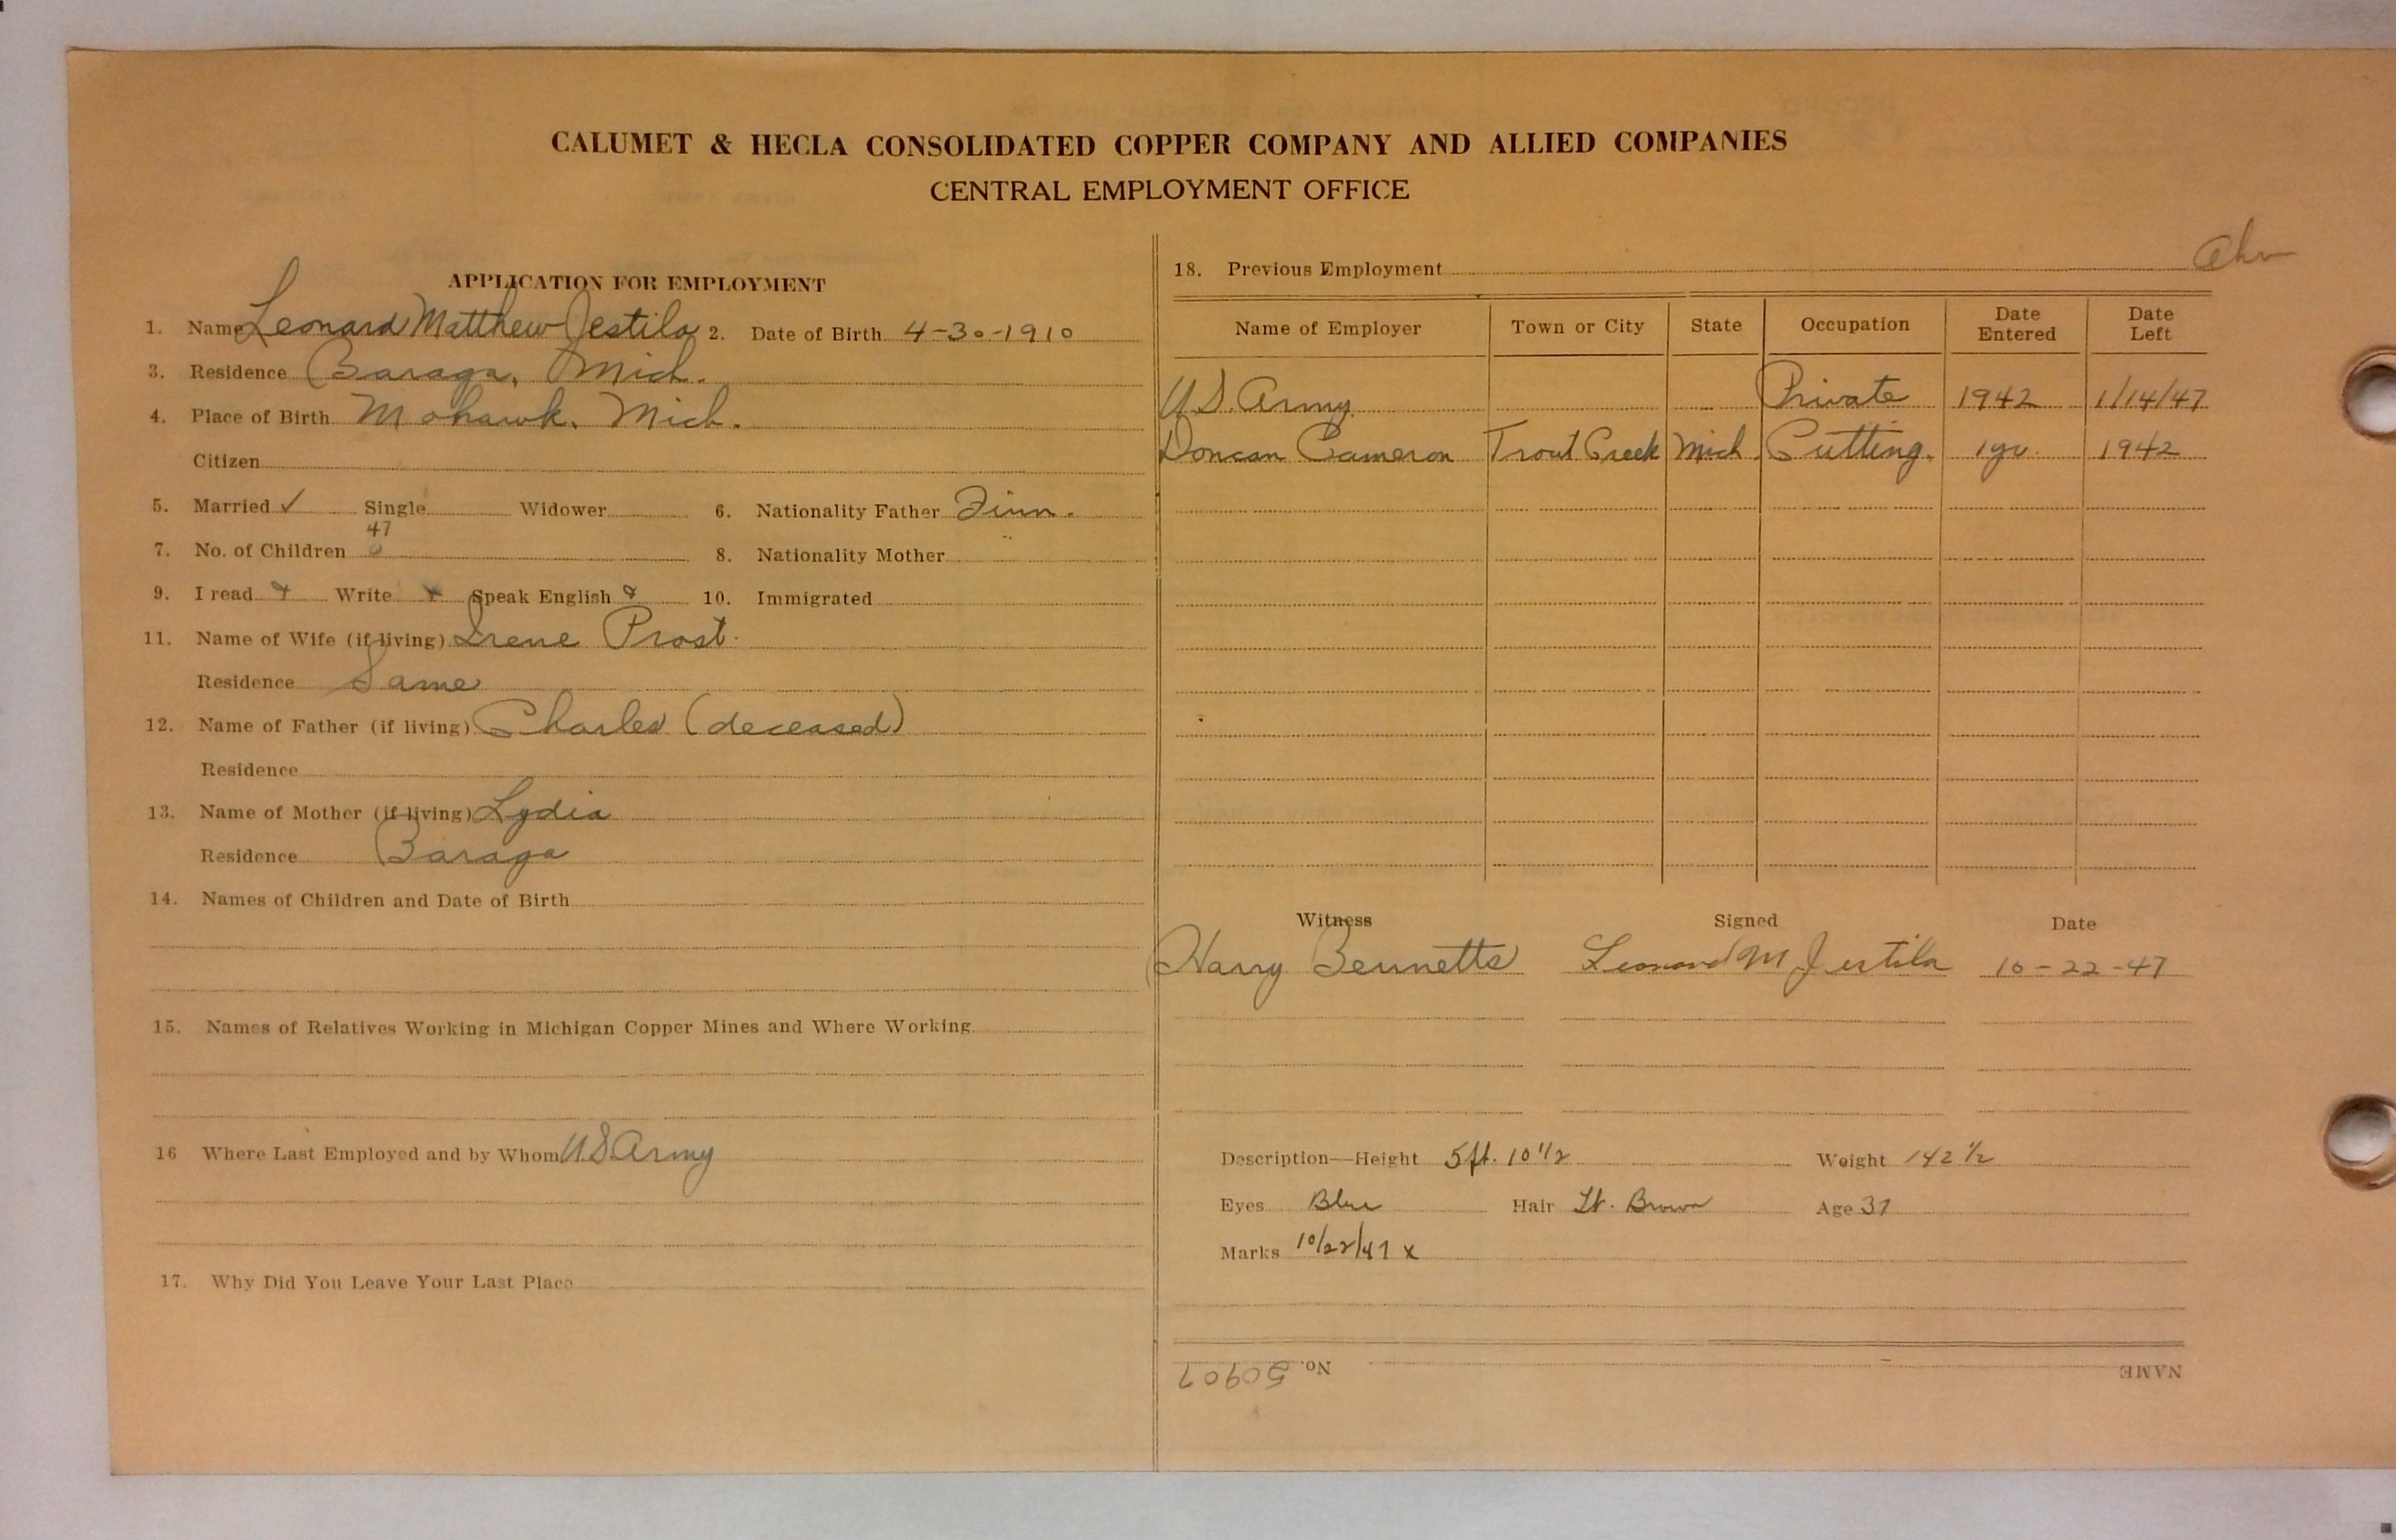 CALUMET & HECLA CONSOLIDATED COPPER COMPANY AND ALLIED COMPANIES
CENTRAL EMPLOYMENT OFFICE
APPLICATION FOR EMPLOYMENT
1. Name Leonard Matthew Jestila 2. Date of Birth 4-30-1910
3. Residence Baraga, Mich.
4. Place of Birth Mohawk, Mich.
Citizen
5. Married ✓ Single Widower 6. Nationality Father Finn.
47
7. No. of Children 0 8. Nationality Mother
9. I read Write Speak English 10. Immigrated
11. Name of Wife (if living) Irene Prost
Residence Same
12. Name of Father (if living) Charles (deceased)
Residence
13. Name of Mother (if living) Lydia
Residence Baraga
14. Names of Children and Date of Birth
15. Names of Relatives Working in Michigan Copper Mines and Where Working
16 Where Last Employed and by Whom U.S. Army
17. Why Did You Leave Your Last Place
18. Previous Employment
Name of Employer Town or City State Occupation Date Entered Date Left
U.S. Army Private 1942 1/14/47
Doncan Cameron Trout Creek Mich Cutting. 1 yr. 1942
Witness Signed Date
Harry Bennetts Leonard M Jestila 10-22-47
Description—Height 5 ft. 10 1/2 Weight 142 1/2
Eyes Blue Hair Lt. Brown Age 37
Marks 10/22/47 x
No. 50907 NAME